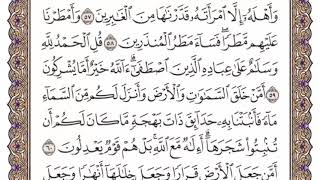 وَأَهْلَهُۥٓ إِلَّا ٱمْرَأَتَهُۥ قَدَّرْنَٰهَا مِنَ ٱلْغَٰبِرِينَ ٥٧ وَأَمْطَرْنَا
عَلَيْهِم مَّطَرًا ۖ فَسَآءَ مَطَرُ ٱلْمُنذَرِينَ ٥٨ قُلِ ٱلْحَمْدُ لِلَّهِ
وَسَلَٰمٌ عَلَىٰ عِبَادِهِ ٱلَّذِينَ ٱصْطَفَىٰٓ ۗ ءَآللَّهُ خَيْرٌ أَمَّا يُشْرِكُونَ
٥٩ أَمَّنْ خَلَقَ ٱلسَّمَٰوَٰتِ وَٱلْأَرْضَ وَأَنزَلَ لَكُم مِّنَ ٱلسَّمَآءِ
مَآءً فَأَنۢبَتْنَا بِهِۦ حَدَآئِقَ ذَاتَ بَهْجَةٍ مَّا كَانَ لَكُمْ أَن
تُنۢبِتُوا۟ شَجَرَهَآ ۗ أَءِلَٰهٌ مَّعَ ٱللَّهِ ۚ بَلْ هُمْ قَوْمٌ يَعْدِلُونَ ٦٠
أَمَّن جَعَلَ ٱلْأَرْضَ قَرَارًا وَجَعَلَ خِلَٰلَهَآ أَنْهَٰرًا وَجَعَلَ